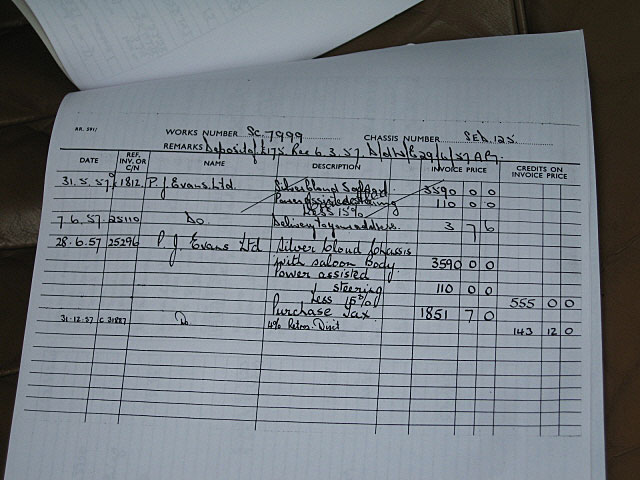 RR. 591/
WORKS NUMBER SC.7999 CHASSIS NUMBER SED.125.
REMARKS Deposit of £175 Rec 6.3.57.
DATE REF. INV. OR C/N NAME DESCRIPTION INVOICE PRICE CREDITS ON INVOICE PRICE
31.5.57 1812 P.J Evans. Ltd. Silver Cloud Saloon 3590 0 0
Power Assisted Steering 110 0 0
Less 15%
7.6.57 25110 Do. Delivery to your address. 3 7 6
28.6.57 25296 P. J. Evans Ltd Silver Cloud Chassis
with saloon Body. 3590 0 0
Power assisted
steering 110 0 0
Less 15% 555 0 0
Purchase Tax 1851 7 0
31.12.57 C 21887 Do 4% Retros. Disct 143 12 0